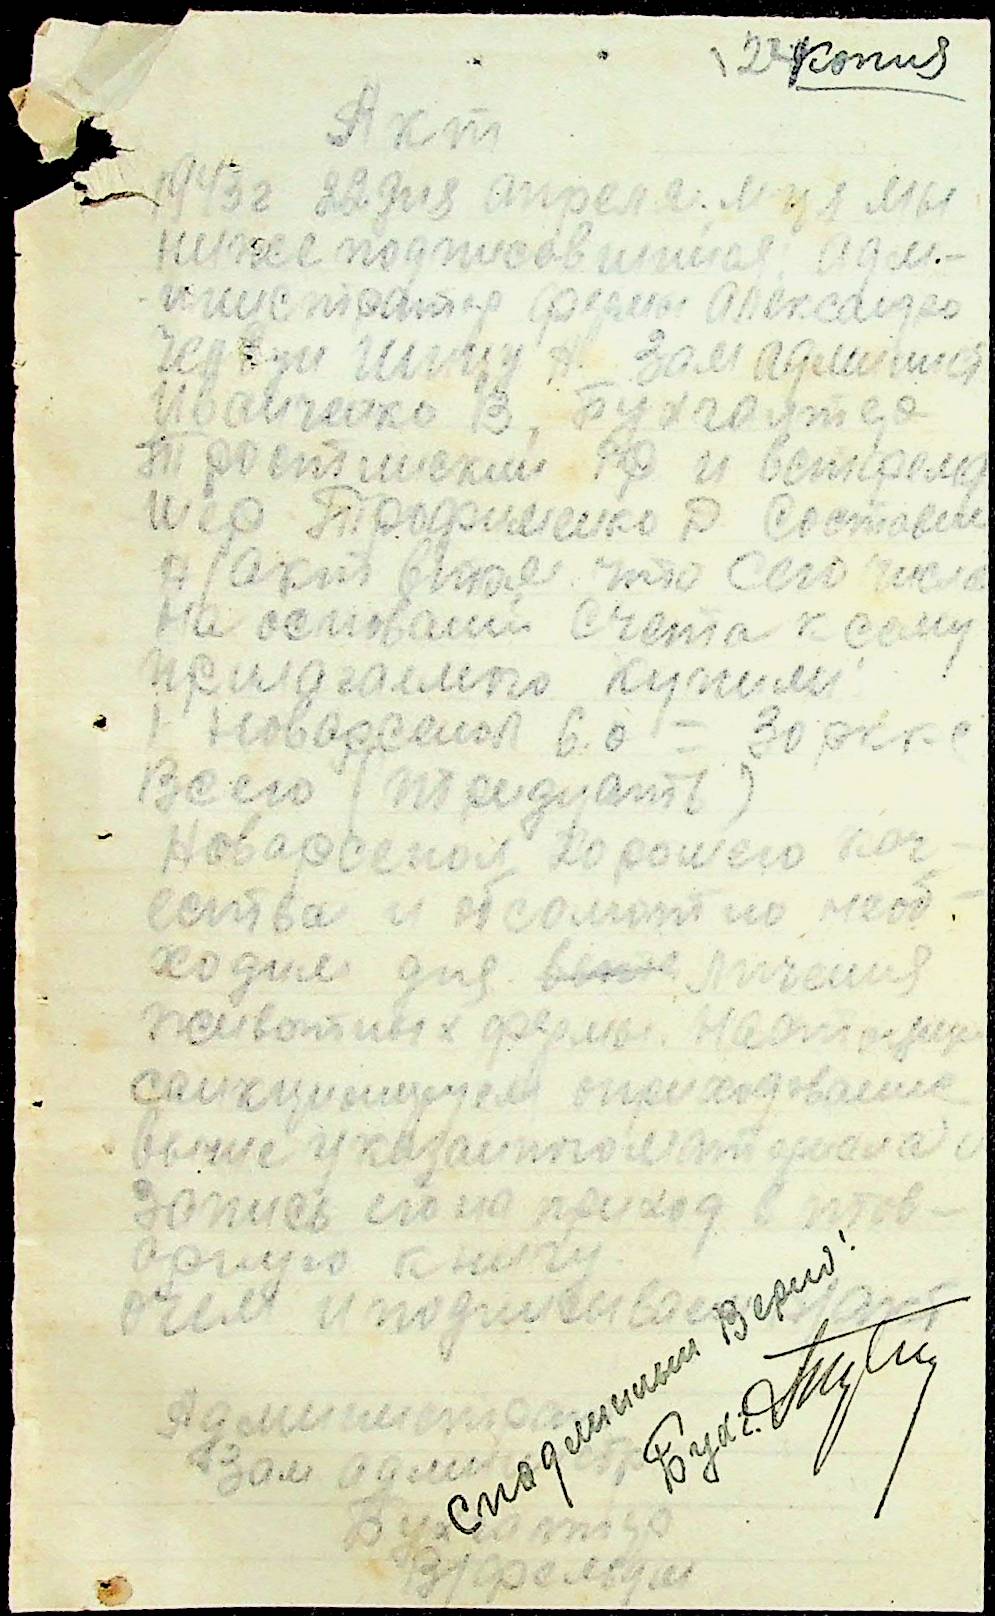 копия
Акт
1943г 22 дня апреля м-ця мы
ниже подписавшийся: адм-
инистратор фермы Александро
Зам админист
Иванченко В, Бухгалтер
Тростинский и ветфельд
шер Трофименко Р Состави
н/акт втом что Сего числа
На основании Счета к сему
прилагаемого купили
1 Новарсенол 6.0 = 30
Всего (тридцать)
Новарсенол Хорошего кач-
ества и абсолютно необ-
ходим для личения
животных фермы.
санкционируем оприходование
выше указанного материала и
Запись его на приход в тов-
арную книгу
Очем и подписываем н/акт
Администратор
Зам администр
Бухгалтер
В/фельдш
Сподлинным Верно!
Бухг.